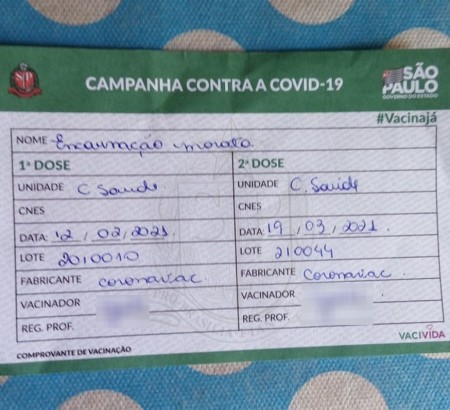 CAMPANHA CONTRA A COVID-19
SÃO PAULO
GOVERNO DO ESTADO
#Vacinajá
NOME Encarnação morato
1ª DOSE 2ª DOSE
UNIDADE C Saude UNIDADE C. Saúde
CNES CNES
DATA: 12 / 02 / 2021 DATA: 19 / 03 / 2021
LOTE 2010010 LOTE 210044
FABRICANTE coronavac. FABRICANTE Coronavac.
VACINADOR VACINADOR
REG. PROF. REG. PROF.
COMPROVANTE DE VACINAÇÃO VACIVIDA